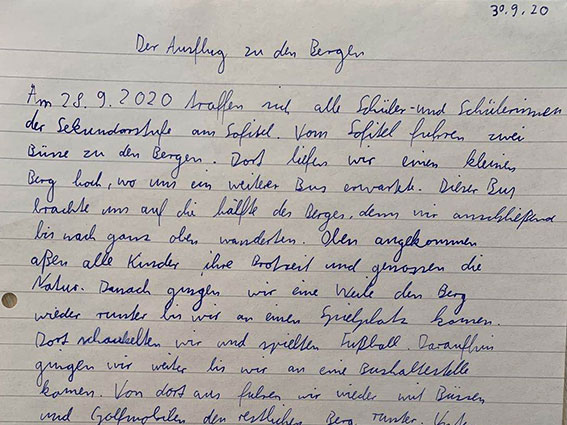 30.9.20
Der Ausflug zu den Bergen
Am 28.9.2020 traffen sich alle Schüler- und Schülerinnen
der Sekundarstufe am Sofitel. Vom Sofitel fuhren zwei
Büsse zu den Bergen. Dort liefen wir einen kleinen
Berg hoch, wo uns ein weiterer Bus erwartete. Dieser Bus
brachte uns auf die hälfte des Berges, denn wir anschließend
bis nach ganz oben wanderten. Oben angekommen
aßen alle Kinder ihre Brotzeit und genossen die
Natur. Danach gingen wir eine Weile den Berg
wieder runter bis wir an einen Spielplatz kamen.
Dort schaukelten wir und spielten Fußball. Daraufhin
gingen wir weiter bis wir an eine Bushaltestelle
kamen. Von dort aus fuhren wir wieder mit Büssen
und Golfmobilen den restlichen Berg runter.